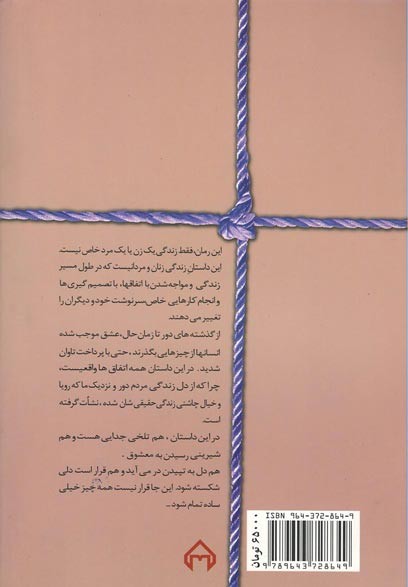 این رمان، فقط زندگی یک زن یا یک مرد خاص نیست.
این داستان زندگی زنان و مردانیست که در طول مسیر
زندگی و مواجه‌شدن با اتفاقها، با تصمیم گیری‌ها
و انجام کارهایی خاص، سرنوشت خود و دیگران را
تغییر می دهند.
از گذشته های دور تا زمان حال، عشق موجب شده
انسانها از چیزهایی بگذرند، حتی با پرداخت تاوان
شدید. در این داستان همه اتفاق ها واقعیست،
چرا که از دل زندگی مردم دور و نزدیک ما که رویا
و خیال چاشنی زندگی حقیقی شان شده ، نشأت گرفته
است.
در این داستان ، هم تلخی جدایی هست و هم
شیرینی رسیدن به معشوق .
هم دل به تپیدن در می آید و هم قرار است دلی
شکسته شود. این جا قرار نیست همه چیز خیلی
ساده تمام شود...
ISBN 964-372-864-9
9789643728649
۶۵۰۰۰ تومان